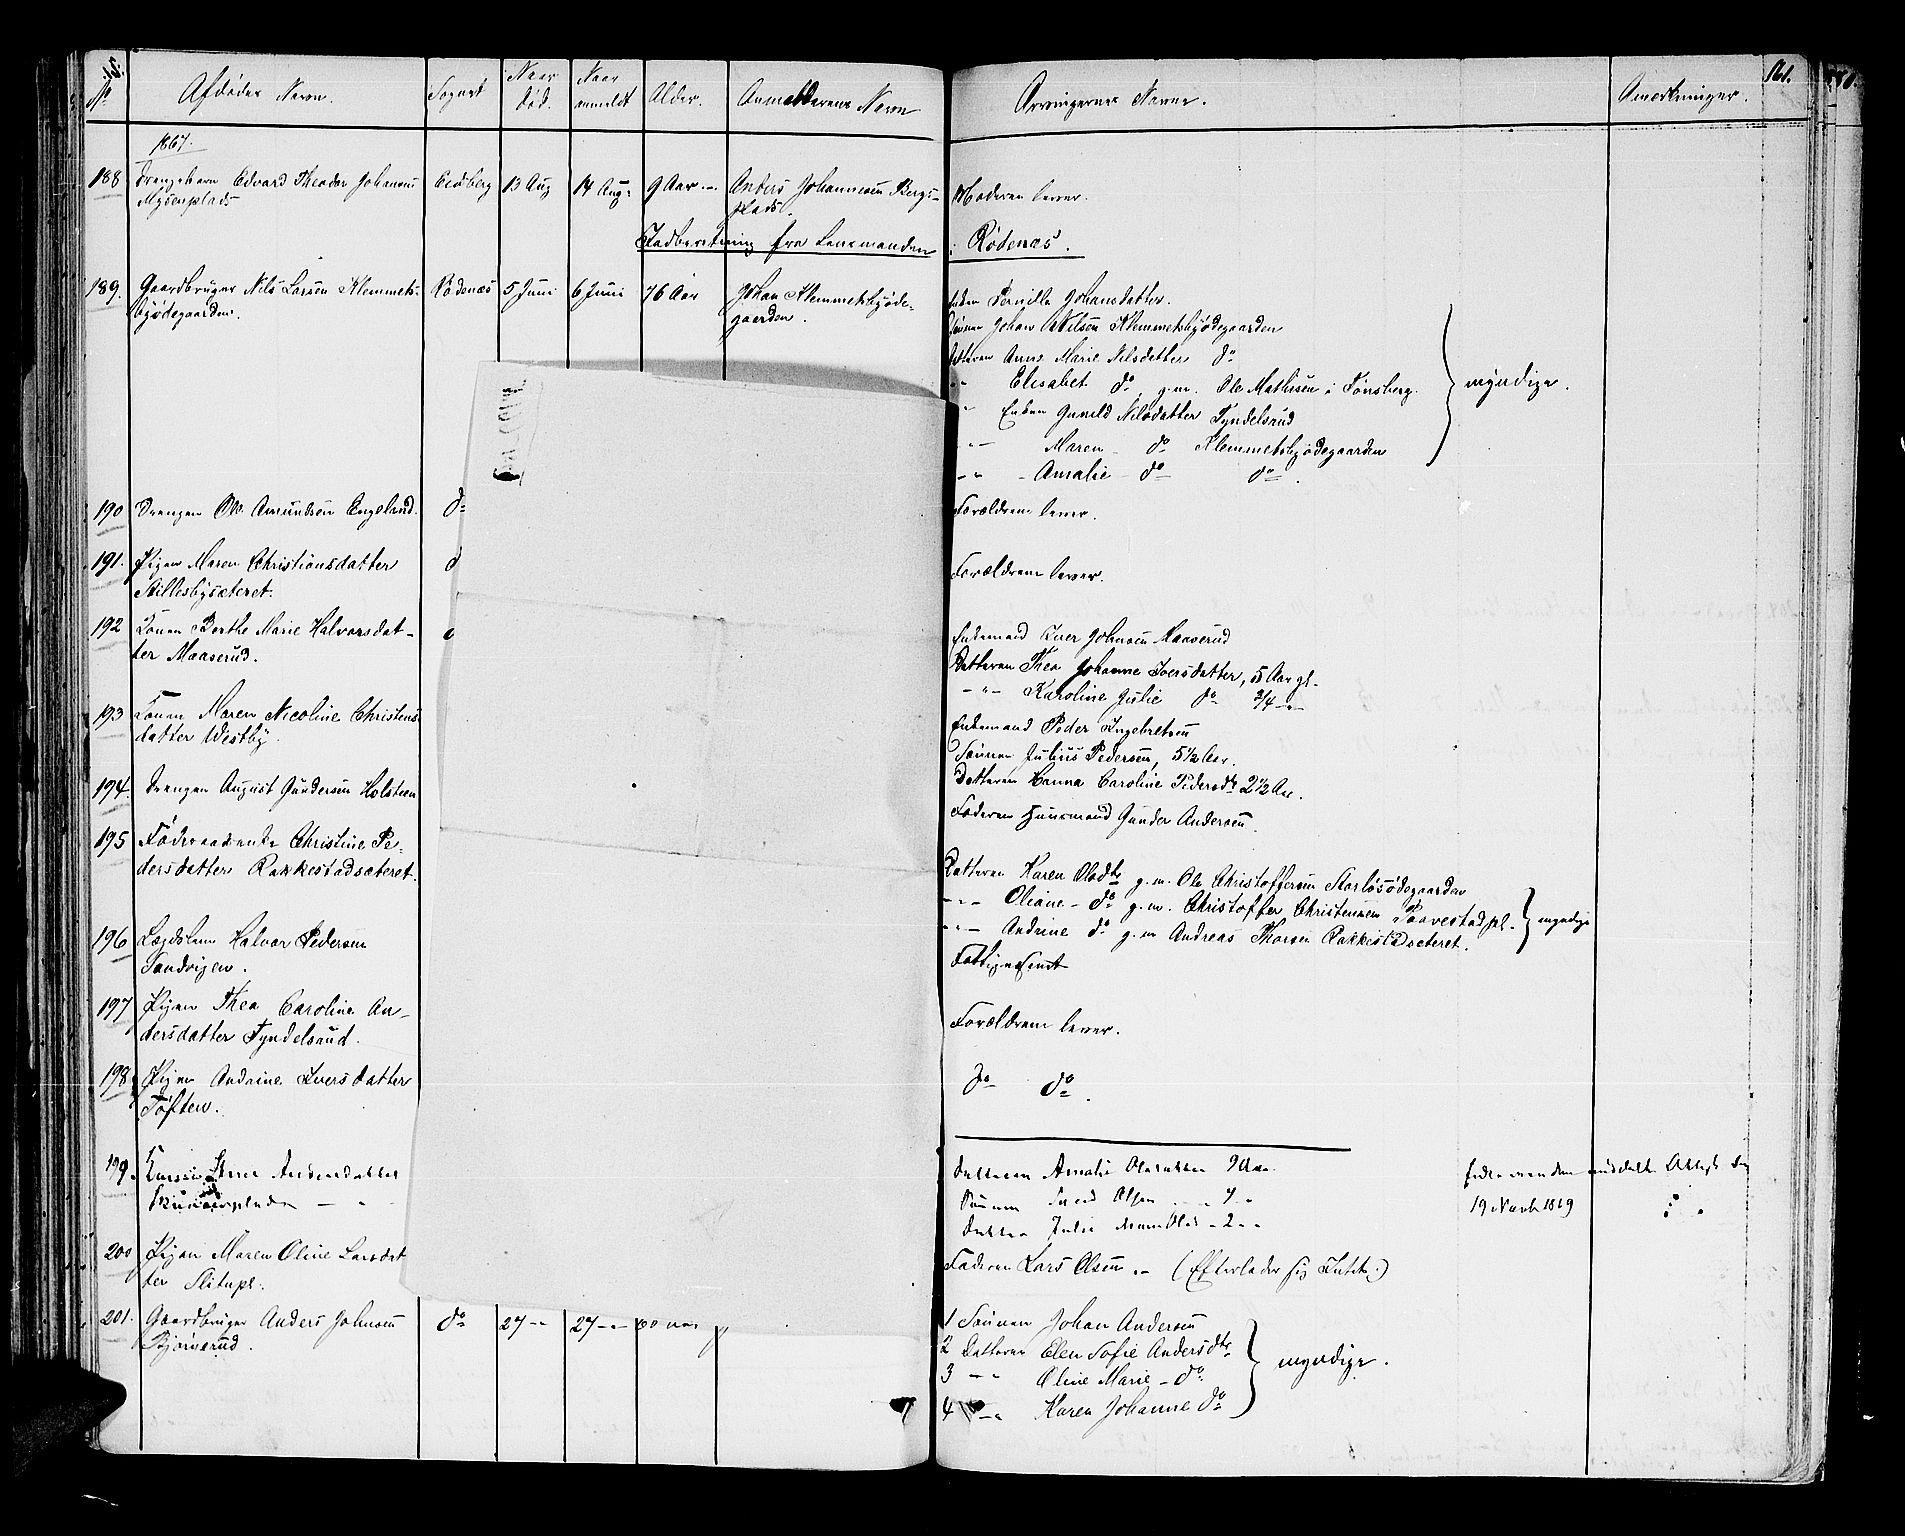 No Afdødes Navn. Sognet Naar død. Naar anmeldt Alder. Anmelderens Navn Arvingernes Navne. Anmærkninger. 161.
1867.
188 Drengebarn Edvard Theodor Johansen Eidsberg 13 Aug 14 Aug: 9 Aar Anders Johannesen Bergs- Moderen lever.
Mysenplads plads.
Dødberetning fra Lensmanden i Rødenæs.
189. Gaardbruger Nils Larsen Klemmets- Rødenæs 5 Juni 6 Juni 76 Aar Johan Klemmetsbyøde- Enken Pernille Johansdatter.
byødegaarden. gaarden.
Sønnen Johan Nilsen Klemmetsbyødegaarden
Datteren Anne Marie Nilsdatter do
-"- Elisabet do g.m. Ole Mathisen i Tønsberg. myndige.
-"- Enken Gunild Nilsdatter Tyndelsrud
-"- Maren do Klemmetsbyødegaarden
-"- Amalie do do.
190 Drengen Ole Amundsen Engelund. do Forældrene lever.
191. Pigen Maren Christiansdatter Forældrene lever.
Stillesbysæteret.
192 Konen Berthe Marie Halvorsdat- Enkemand Iver Johnsen Maaserud
ter Maaserud. Datteren Thea Johanne Iversdatter, 5 Aar gl.
-"- Karoline Julie do 3/4 -"-
193 Konen Maren Nicoline Christens Enkemand Peder Ingebretsen
datter Westby. Sønnen Julius Pedersen, 5 1/2 Aar.
Datteren Hanna Caroline Pedersdtr 2 1/2 Aar.
194. Drengen August Gundersen Holsteen Faderen Huusmand Gunder Andersen
195 Føderaadsenke Christine Pe- Datteren Karen Olsdtr g.m. Ole Christoffersen
dersdatter Rakkestadsæteret. -"- Oliane do g.m. Christoffer Christensen Paavestadpl. myndige
-"- Andrine do g.m. Andreas Thorsen Rakkestadsæteret.
196 Lægdslem Halvor Pedersen Fattigvæsenet
Sandvigen.
197 Pigen Thea Caroline An- Forældrene lever.
dersdatter Tyndelsrud.
198 Pigen Andrine Iversdatter do do.
Tøften.
199. Andersdatter Datteren Amalie Olsdatter 9 Aar
Sønnen Olsen 4 19 Marts 1869
Datteren Julie 2
200 Pigen Maren Oline Larsdat- Faderen Lars Olsen (Efterlader sig Intet.)
ter Slitupl.
201. Gaardbruger Anders Johnsen do 27 -"- 27 -"- 1 Sønnen Johan Andersen
Bjørnerud. 2 Datteren Elen Sofie Andersdtr
3 -"- Oline Marie do myndige.
4 -"- Karen Johanne do